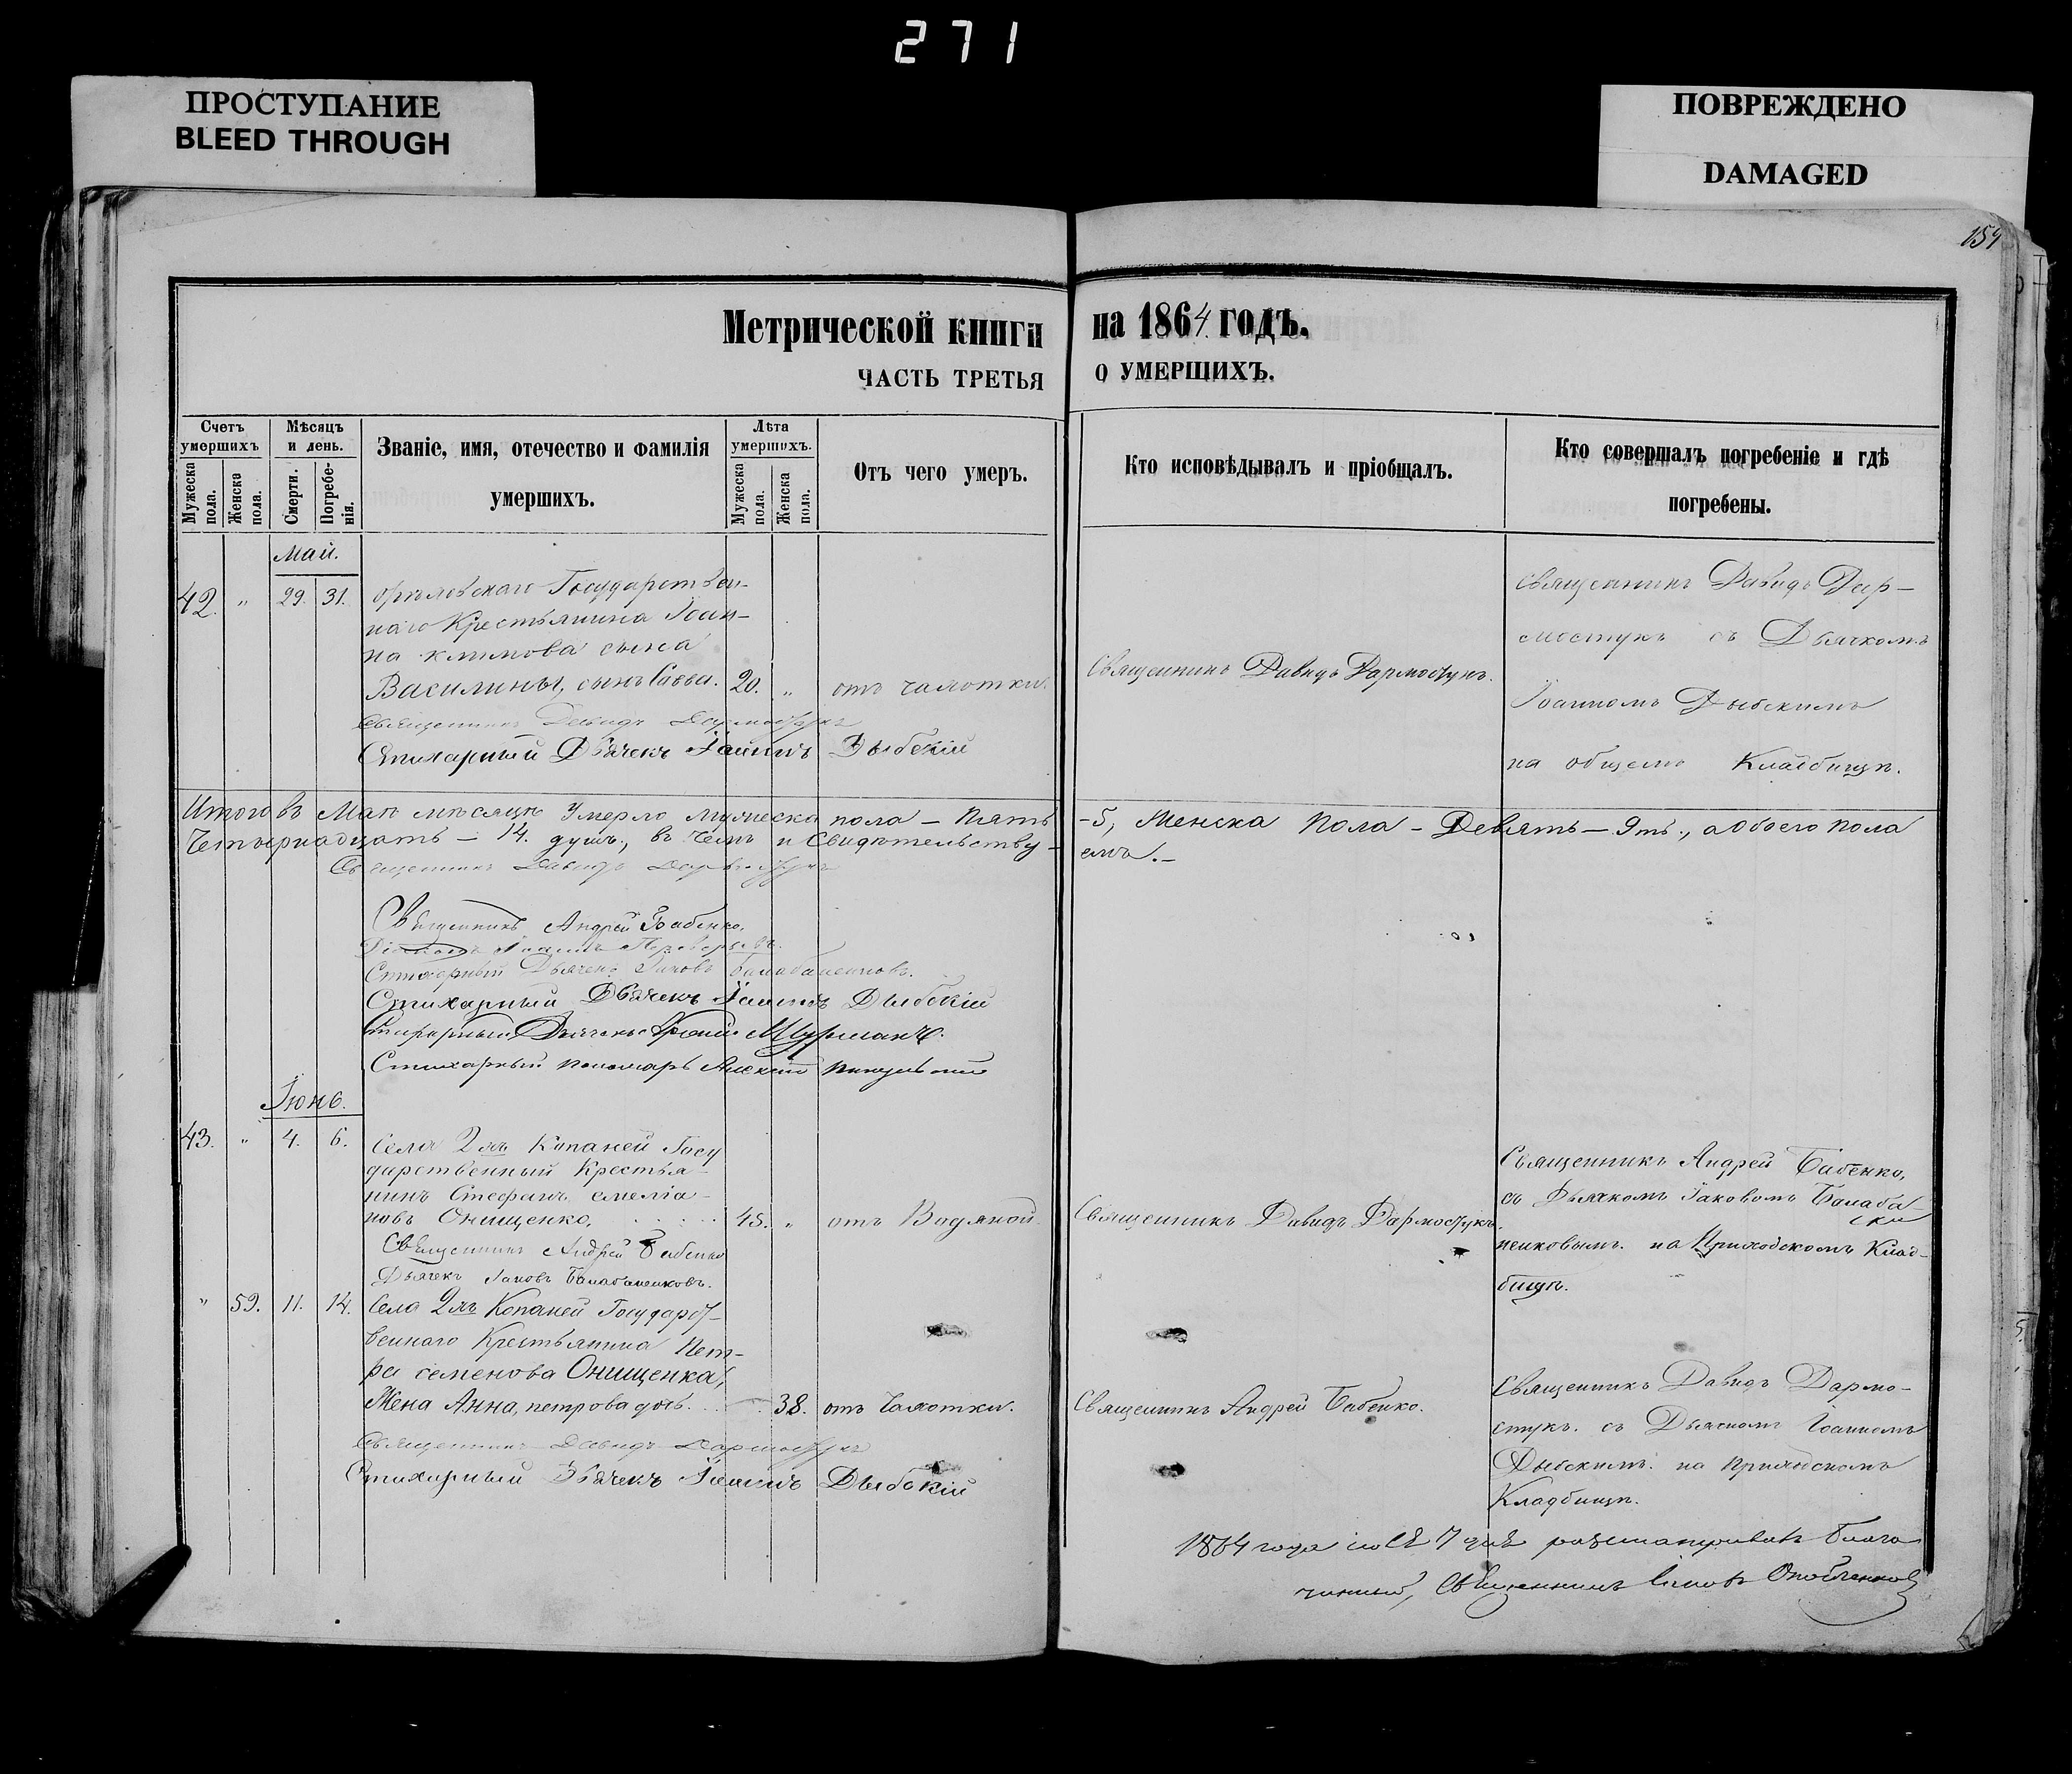 271
ПРОСТУПАНИЕ
BLEED THROUGH
ПОВРЕЖДЕНО
DAMAGED
159
Метрической книги на 1864 годъ.
ЧАСТЬ ТРЕТЬЯ О УМЕРШИХЪ.
Счетъ умершихъ
Мужеска пола.
Женска пола.
Мѣсяцъ и день.
Смерти.
Погребенія.
Званіе, имя, отечество и фамилія
умершихъ.
Лѣта умершихъ.
Мужеска пола.
Женска пола.
Отъ чего умеръ.
Кто исповѣдывалъ и пріобщалъ.
Кто совершалъ погребеніе и гдѣ
погребены.
Май.
42. " 29. 31.
Государствен-
наго Крестьянина Іоан-
на климова сына
Василины, сынъ Савва. 20. " отъ чахотки.
Священникъ Давидъ Дармостукъ
Стихарный Дьячекъ Іоаннъ Дыбскій
Священникъ Давидъ Дармостукъ.
Священникъ Давидъ Дар-
мостукъ съ Дьячкомъ
Іоанномъ Дыбскимъ
на общемъ Кладбищѣ.
Итого въ Маѣ мѣсяцѣ Умерло мужеска пола – Пять -5, Женска Пола – Девять – 9ть., а Обоего пола
Четырнадцать – 14. душъ., въ чемъ и Свидѣтельству-
емъ.–
Священникъ Давидъ Дармостукъ
Священникъ Андрей Бабенко.
Стихарный Дьячекъ Іаковъ Балабаненковъ.
Стихарный Дьячекъ Іоаннъ Дыбскій
Стихарный Дьячекъ
Стихарный пономарь Алексій
Іюнь.
43. " 4. 6. Села 2хъ Копаней Госу
дарственный Крестья-
нинъ Стефанъ емелiа-
новъ Онищенко, 45. " отъ Водяной.
Священникъ Андрей Бабенко
Дьячекъ Іаковъ Балабаненковъ.
Священникъ Давидъ Дармостукъ.
Священникъ Андрей Бабенко,
съ Дьячкомъ Іаковомъ Балаба-
ненковымъ. на Приходскомъ Клад-
бищѣ.
" 59. 11. 14. Села 2хъ Копаней Государст-
веннаго Крестьянина Пет-
ра семенова Онищенка,
Жена Анна, петрова дочь. 38. отъ Чахотки.
Священникъ Давидъ Дармостукъ
Стихарный Дьячекъ Іоаннъ Дыбскій
Священникъ Андрей Бабенко.
Священникъ Давидъ Дармо-
стукъ. съ Дьячкомъ Іоанномъ
Дыбскимъ. на Приходскомъ
Кладбищѣ.
1864 года 7 дня благо
чинный, Священникъ